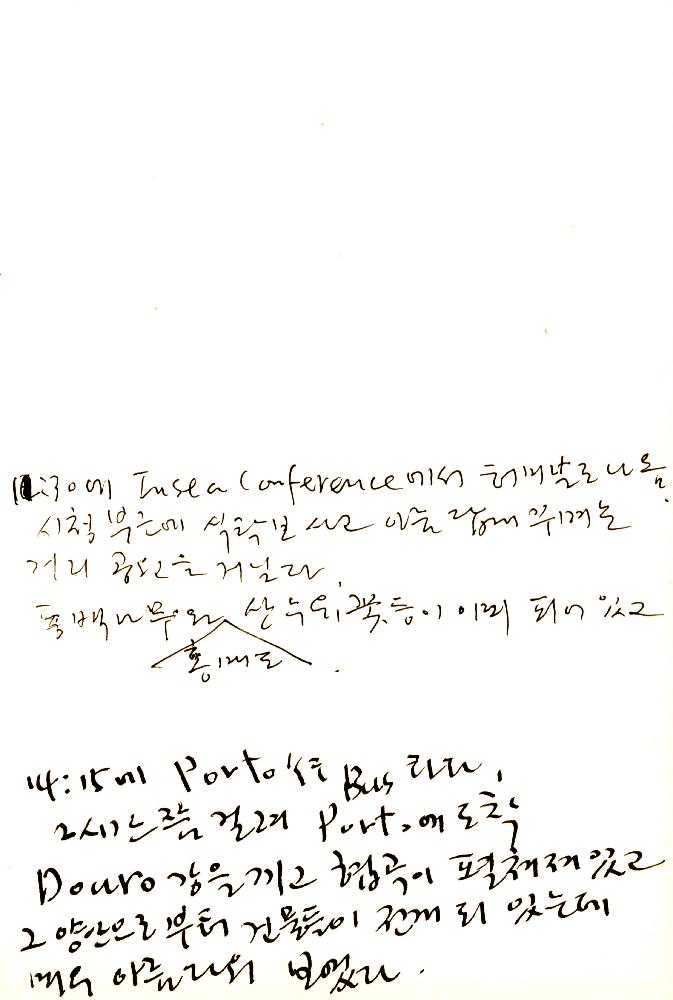 11:30에 Insea Conference에서 나옴.
시청 부근에 식탁보 사고 아름답게 꾸며논
거리 공원을 거닐다.
동백나무와 산수유꽃 등이 이미 피어 있고
홍매도
14:15에 Porto行 Bus 타다.
2시간쯤 걸려 Porto에 도착
Douro 강을 끼고 협곡이 펼쳐져 있고
그 양안으로부터 건물들이 전개 되 있는데
매우 아름다워 보였다.